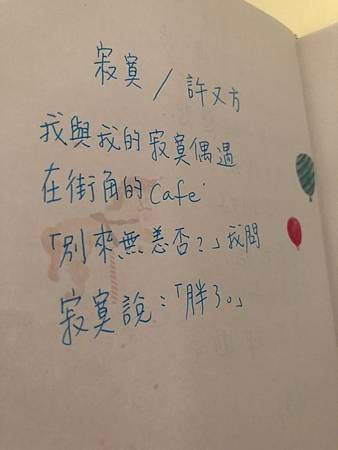 寂寞/許又方
我與我的寂寞偶遇
在街角的Cafe'
「別來無恙否?」我問
寂寞說:「胖了。」